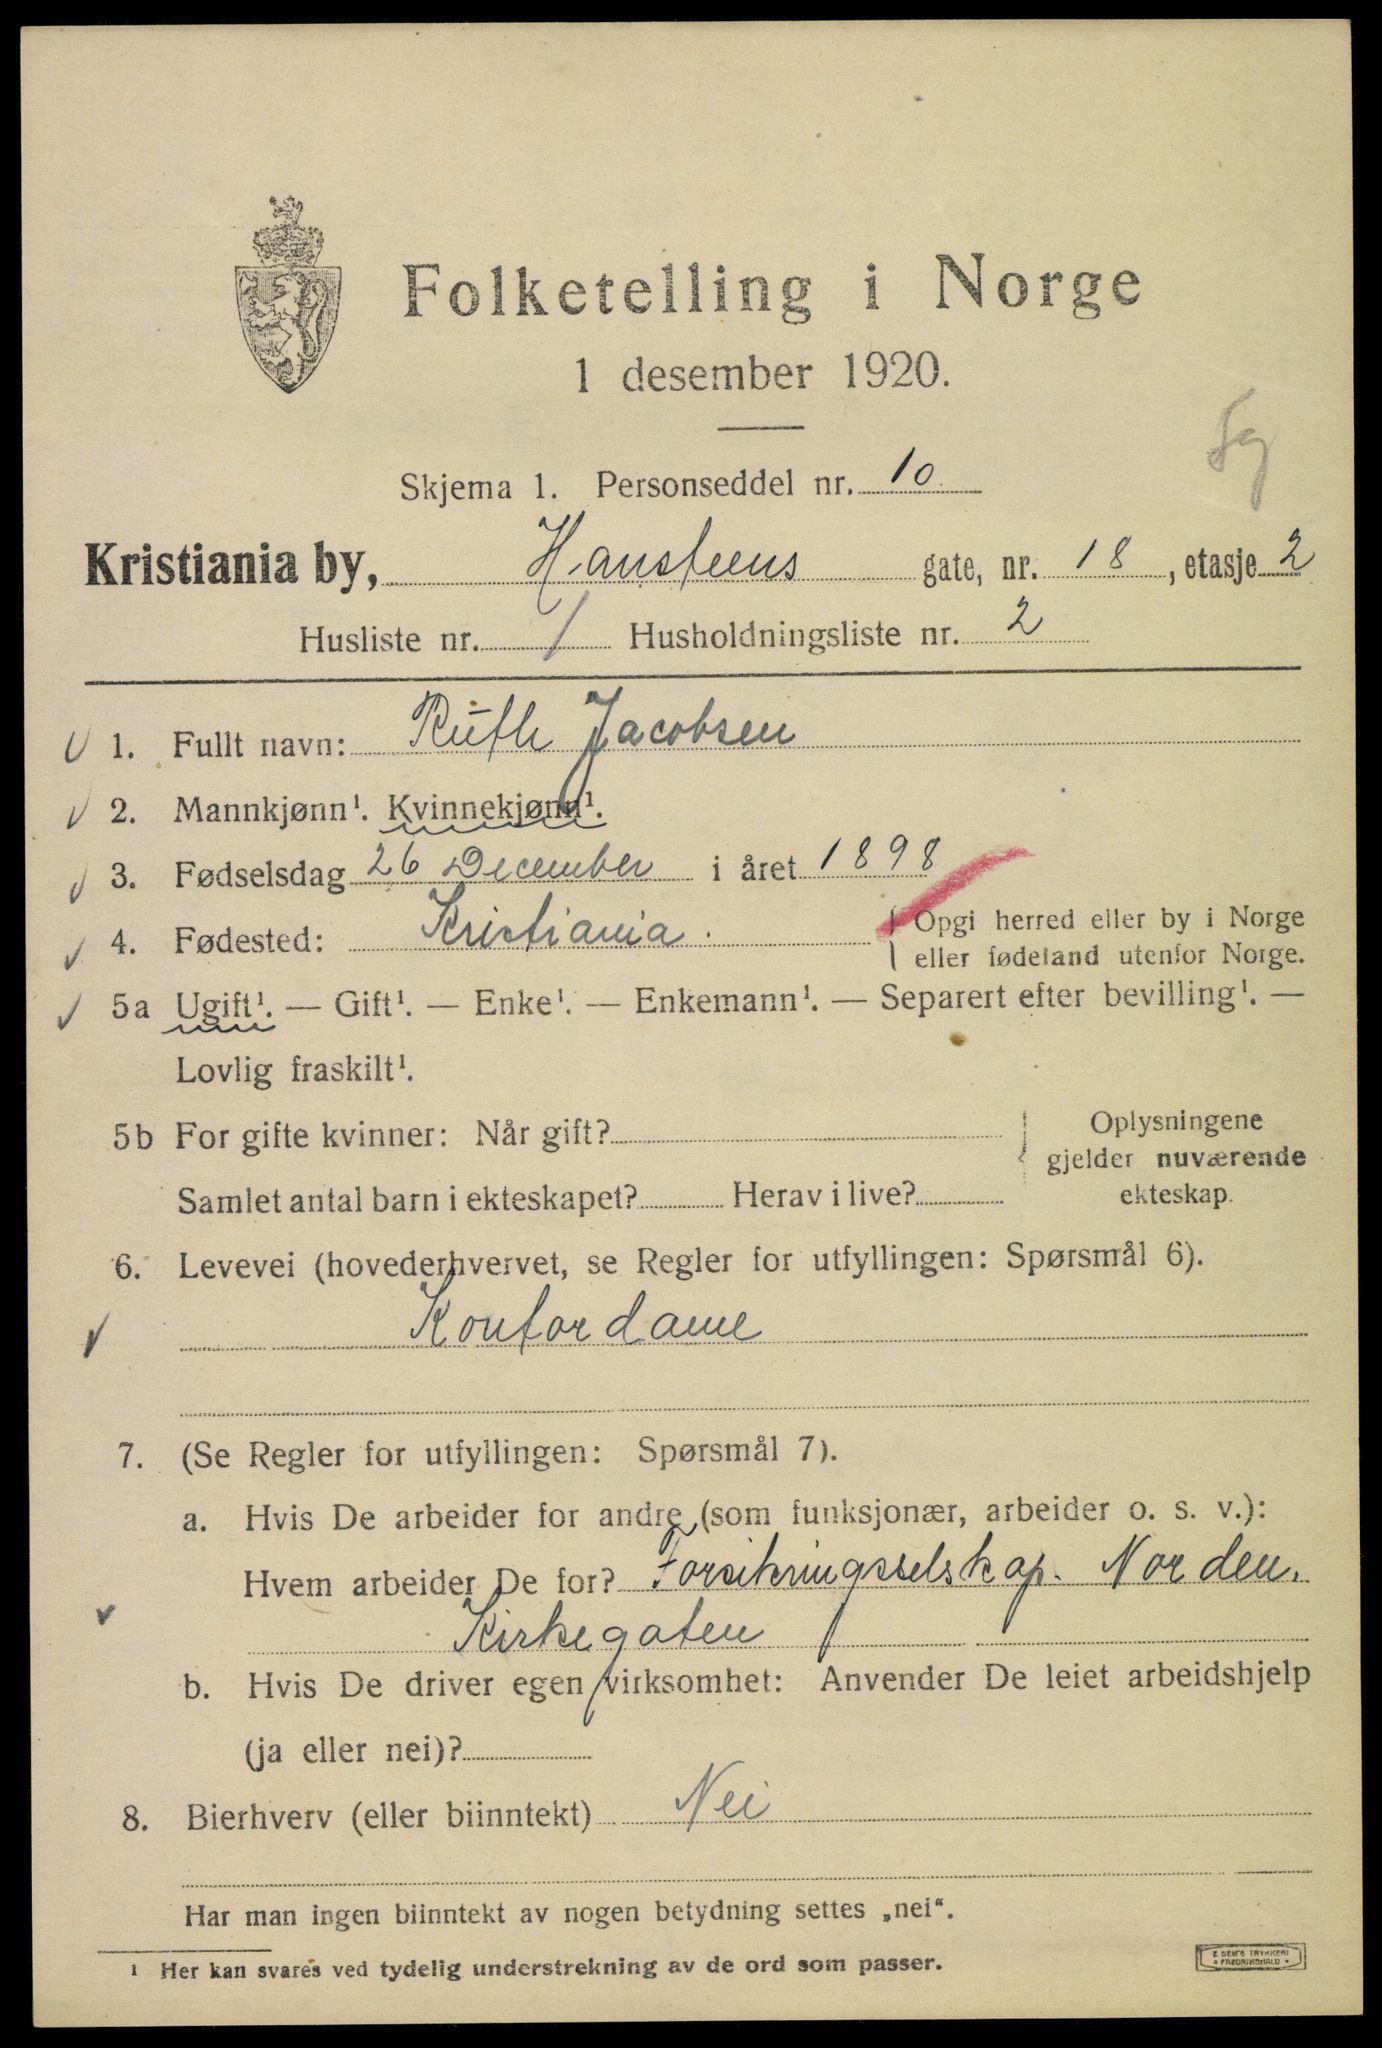 Folketelling i Norge
1 desember 1920.
Skjema 1. Personseddel nr. 10
Kristiania by, Hansteens gate, nr. 18, etasje 2
Husliste nr. 1 Husholdningsliste nr. 2
1. Fullt navn: Ruth Jacobsen
2. Mannkjønn¹. Kvinnekjønn¹.
3. Fødselsdag 26 December i året 1898
4. Fødested: Kristiania. { Opgi herred eller by i Norge
eller fødeland utenfor Norge.
5a Ugift¹. — Gift¹. — Enke¹. — Enkemann¹. — Separert efter bevilling¹. —
Lovlig fraskilt¹.
5b For gifte kvinner: Når gift?
Samlet antal barn i ekteskapet? Herav i live?
Oplysningene
gjelder nuværende
ekteskap.
6. Levevei (hovederhvervet, se Regler for utfyllingen: Spørsmål 6).
Kontordame
7. (Se Regler for utfyllingen: Spørsmål 7).
a. Hvis De arbeider for andre (som funksjonær, arbeider o. s. v.):
Hvem arbeider De for? Forsikringsselskap. Norden.
Kirkegaten
b. Hvis De driver egen virksomhet: Anvender De leiet arbeidshjelp
(ja eller nei)?
8. Bierhverv (eller biinntekt) Nei
Har man ingen biinntekt av nogen betydning settes „nei“.
¹ Her kan svares ved tydelig understrekning av de ord som passer.
E SEM'S TRYKKERI
* FREDRIKSHALD *